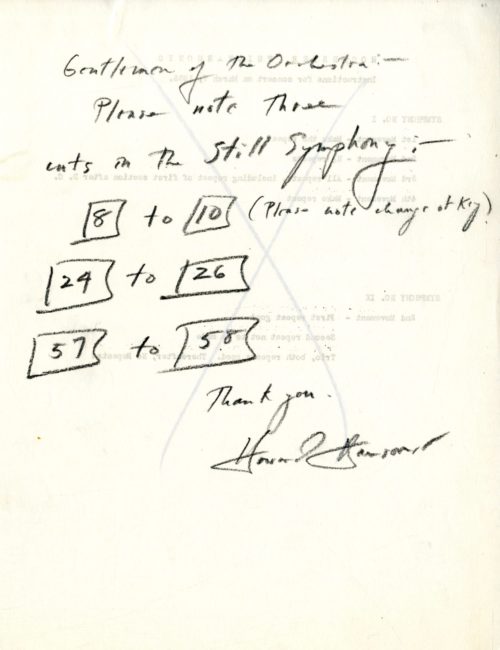 Gentlemen of the Orchestra:—
Please note three
cuts in the Still Symphony:—
8 to 10 (Please note change of key)
24 to 26
57 to 58
Thank you.
Howard